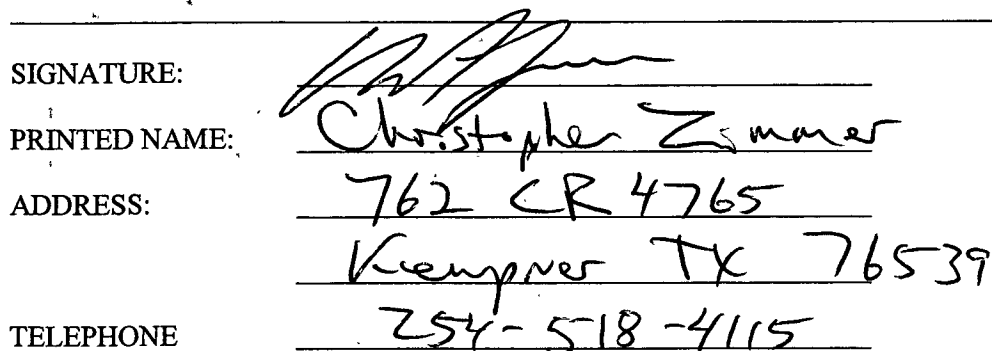 SIGNATURE:
PRINTED NAME: Christopher Zimmer
ADDRESS: 762 CR 4765
Kempner TX 76539
TELEPHONE 254-518-4115